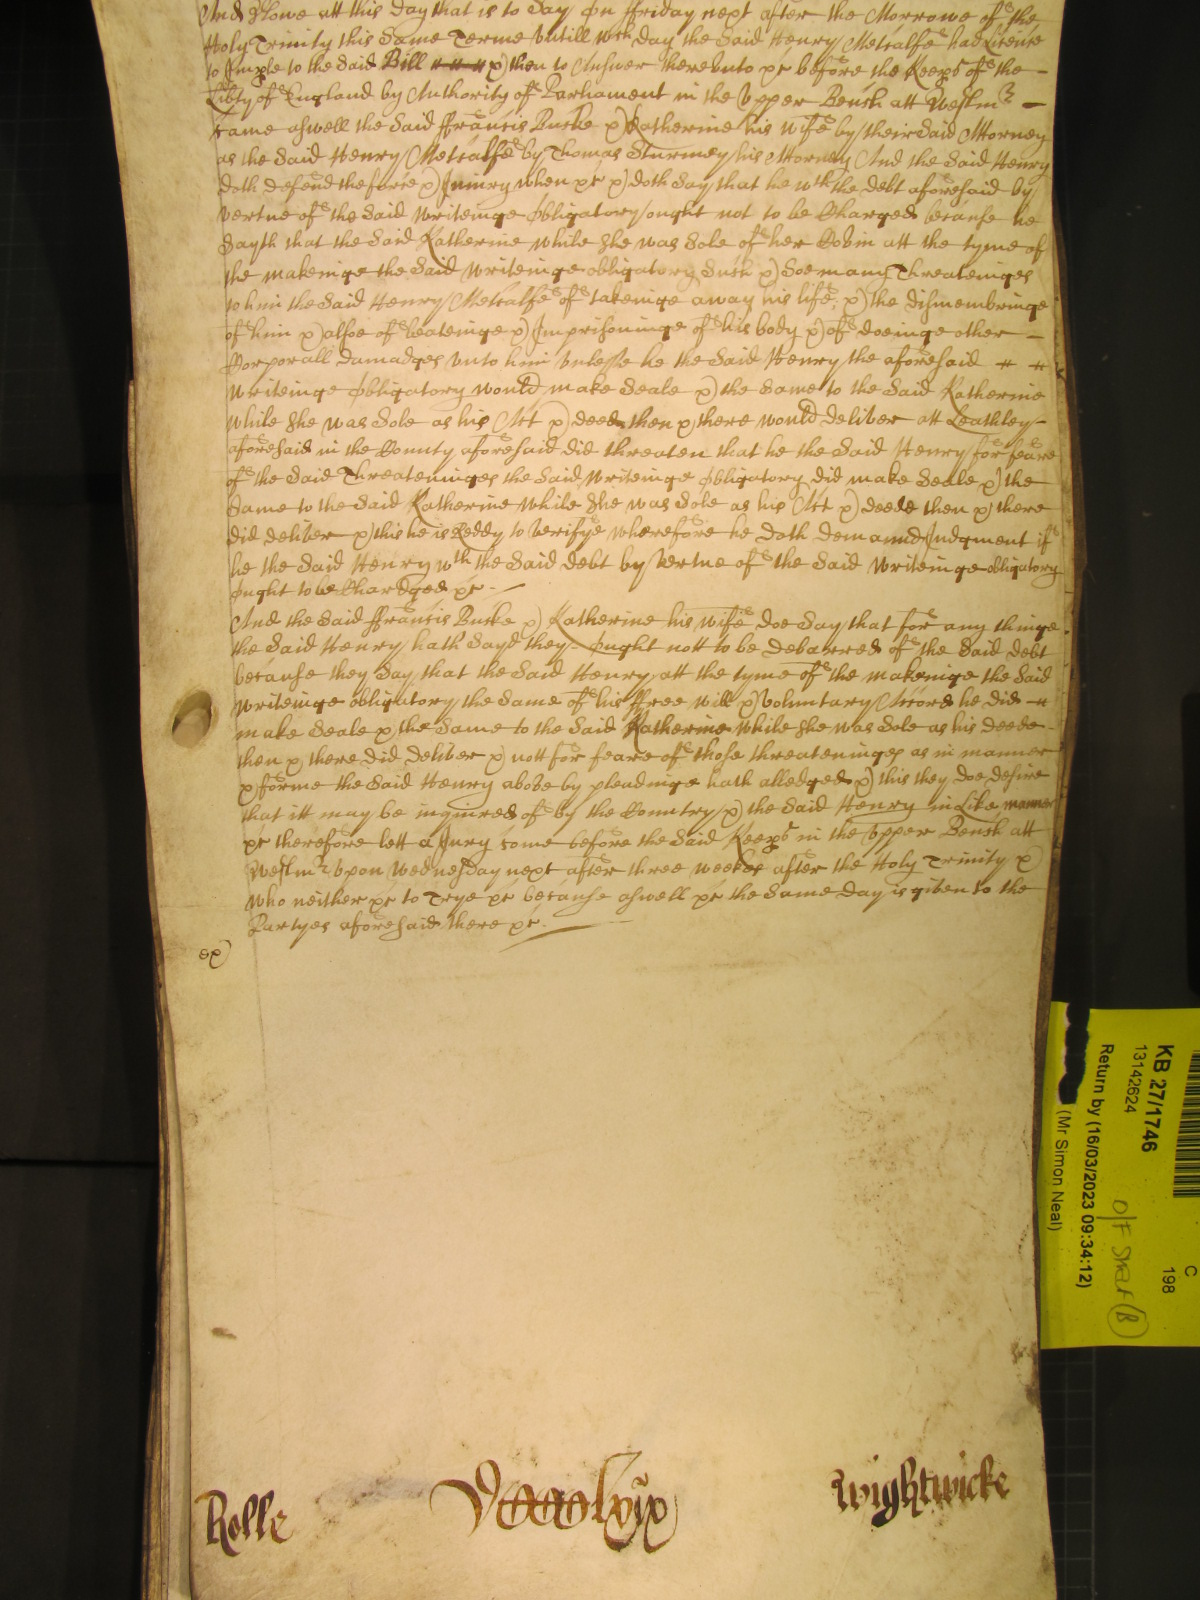 And Nowe att this day that is to say on ffriday next after the Morrowe of the
Holy Trinity this same Terme untill wch day the said Henry Metcalfe had License
to Imple to the said Bill & then to Answer thereunto &c before the Keeps of the
Liberty of England by Authority of Parliament in the Upper Bench att Westmr
came aswell the said ffrancis Buske & Katherine his wife by their said Attorney
as the said Henry Metcalfe by Thomas Sturmey his Attorney And the said Henry
doth defend the force & Iniury when &c & doth say that he wth the debt aforesaid by
vertue of the said writeinge obligatory ought not to be Charged because he
sayth that the said Katherine while she was sole of her Covin att the tyme of
the makeinge the said writeinge obligatory such & soe many Threateninges
to him the said Henry Metcalfe of takeinge away his life & the dismembringe
of him & alsoe of beateinge & Imprisoninge of his body & of doeinge other
Corporall damadges unto him unlesse he the said Henry the aforesaid
writeinge obligatory would make seale & the same to the said Katherine
while she was sole as his Act & deede then & there would deliver att Leathley
aforesaid in the County aforesaid did threaten that he the said Henry for feare
of the said Threateninges the said writeinge obligatory did make seale & the
same to the said Katherine while she was sole as his Act & deede then & there
did deliver & this he is Reddy to verifye wherefore he doth demannd Iudgment if
he the said Henry wth the said debt by vertue of the said writeinge obligatory
ought to be Chardged &c
And the said ffrancis Buske & Katherine his wife doe say that for any thinge
the said Henry hath sayd they ought nott to be debarred of the said debt
because they say that the said Henry att the tyme of the makeinge the said
writeinge obligatory the same of his ffree will & voluntary Accord he did
make seale & the same to the said Katherine while she was sole as his deede
then & there did deliver & nott for feare of those threateninges as in manner
& forme the said Henry above by pleadinge hath alledged & this they doe desire
that itt may be inquired of by the Country & the said Henry in Like manner
&c therefore lett a Iury come before the said Keeps in the Upper Bench att
Westmr upon Wednesday next after three weekes after the Holy Trinity &
who neither &c to Trye &c because aswell &c the same day is given to the
Partyes aforesaid there &c
Rolle
Wightwicke
KB 27/1746
13142624
Return by (16/03/2023 09:34:12)
(Mr Simon Neal)
C
198
O/F Shelf (B)